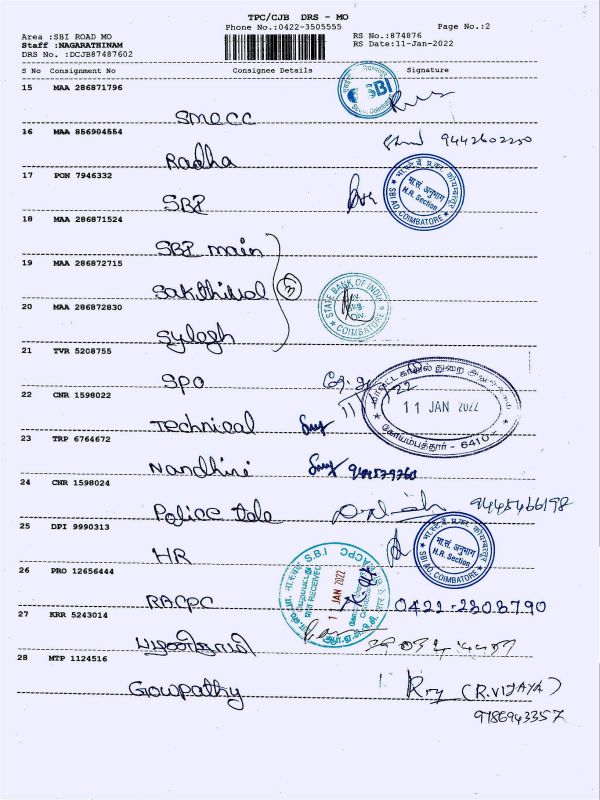 TPC/CJB DRS - MO
Phone No.:0422-3505555 Page No.:2
Area :SBI ROAD MO RS No.:874876
Staff :NAGARATHINAM RS Date:11-Jan-2022
DRS No. :DCJB87487602
S No Consignment No Consignee Details Signature
15 MAA 286871796
SBI
SMECC
16 MAA 856904554
Radha 9442602250
17 PON 7946332
SBI
मा.सं. अनुभाग
H.R. Section
SBI AO, COIMBATORE
18 MAA 286871524
SBI main
19 MAA 286872715
Sakthivel 3
20 MAA 286872830
STATE BANK OF INDIA
COIMBATORE
Sylogh
21 TVR 5208755
SPO
22 CNR 1598022
11 JAN 2022
கோயம்புத்தூர் - 6410
Technical
23 TRP 6764672
Nandhini
24 CNR 1598024
Police tale 9445466198
25 DPI 9990313
HR
मा.सं. अनुभाग
H.R. Section
SBI AO, COIMBATORE
26 PRO 12656444
S.B.I RACPC
RECEIVED
11 JAN 2022
RACPC 0422-2303790
27 KRR 5243014
பழனிசாமி
28 MTP 1124516
Gowpathy (R.VIJAYA)
9786943357